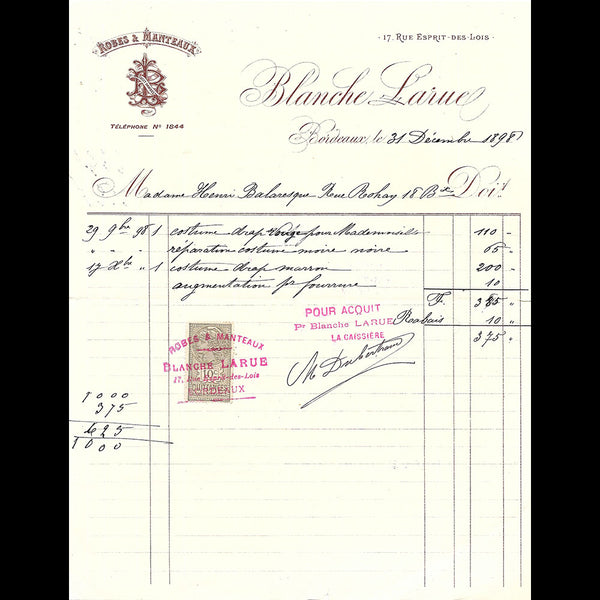 ROBES & MANTEAUX
TÉLÉPHONE Nº 1844
· 17, RUE ESPRIT-DES-LOIS ·
Blanche Larue
Bordeaux, le 31 Décembre 1898
Madame Henri Balaresque Rue Rohan 18 Bis Doit
29 9bre 98 1 costume drap rouge pour Mademoiselle 110 "
" " " réparation costume moire noire 65 "
17 Xbre " 1 costume drap marron 200 "
augmentation pr fourrure 10
F. 385 "
Rabais 10 "
375 "
POUR ACQUIT
Pr Blanche LARUE
LA CAISSIÈRE
M Dubertrand
ROBES & MANTEAUX
BLANCHE LARUE
17, Rue Esprit-des-Lois
BORDEAUX
10c
QUITTANCES
1000
375
625
1000